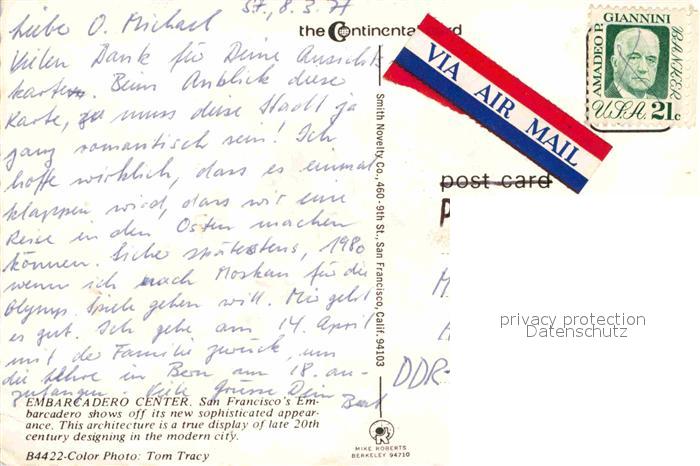 SF, 8.3.77
Liebe O. Michael
Vielen Dank für Deine Ansichts-
karte. Beim Anblick diese
Karte, muss diese Stadt ja
ganz romantisch sein! Ich
hoffe wirklich, dass es einmal
klappen wird, dass wir eine
Reise in den Osten machen
können. Sicher spätestens, 1980
wenn ich nach Moskau für die
Olymp. Spiele gehen will. Mir geht
es gut. Ich gehe am 14. April
mit der Familie zurück, um
die Lehre in Bern am 18. an-
zufangen. Viele Grüsse Dein
Beat
EMBARCADERO CENTER. San Francisco's Em-
barcadero shows off its new sophisticated appear-
ance. This architecture is a true display of late 20th
century designing in the modern city.
B4422-Color Photo: Tom Tracy
the Continental Card
Smith Novelty Co., 460-9th St. San Francisco, Calif. 94103
MIKE ROBERTS
BERKELEY 94710
VIA AIR MAIL
AMADEO P. GIANNINI
BANKER
U.S.A. 21c
post card
DDR-
privacy protection
Datenschutz